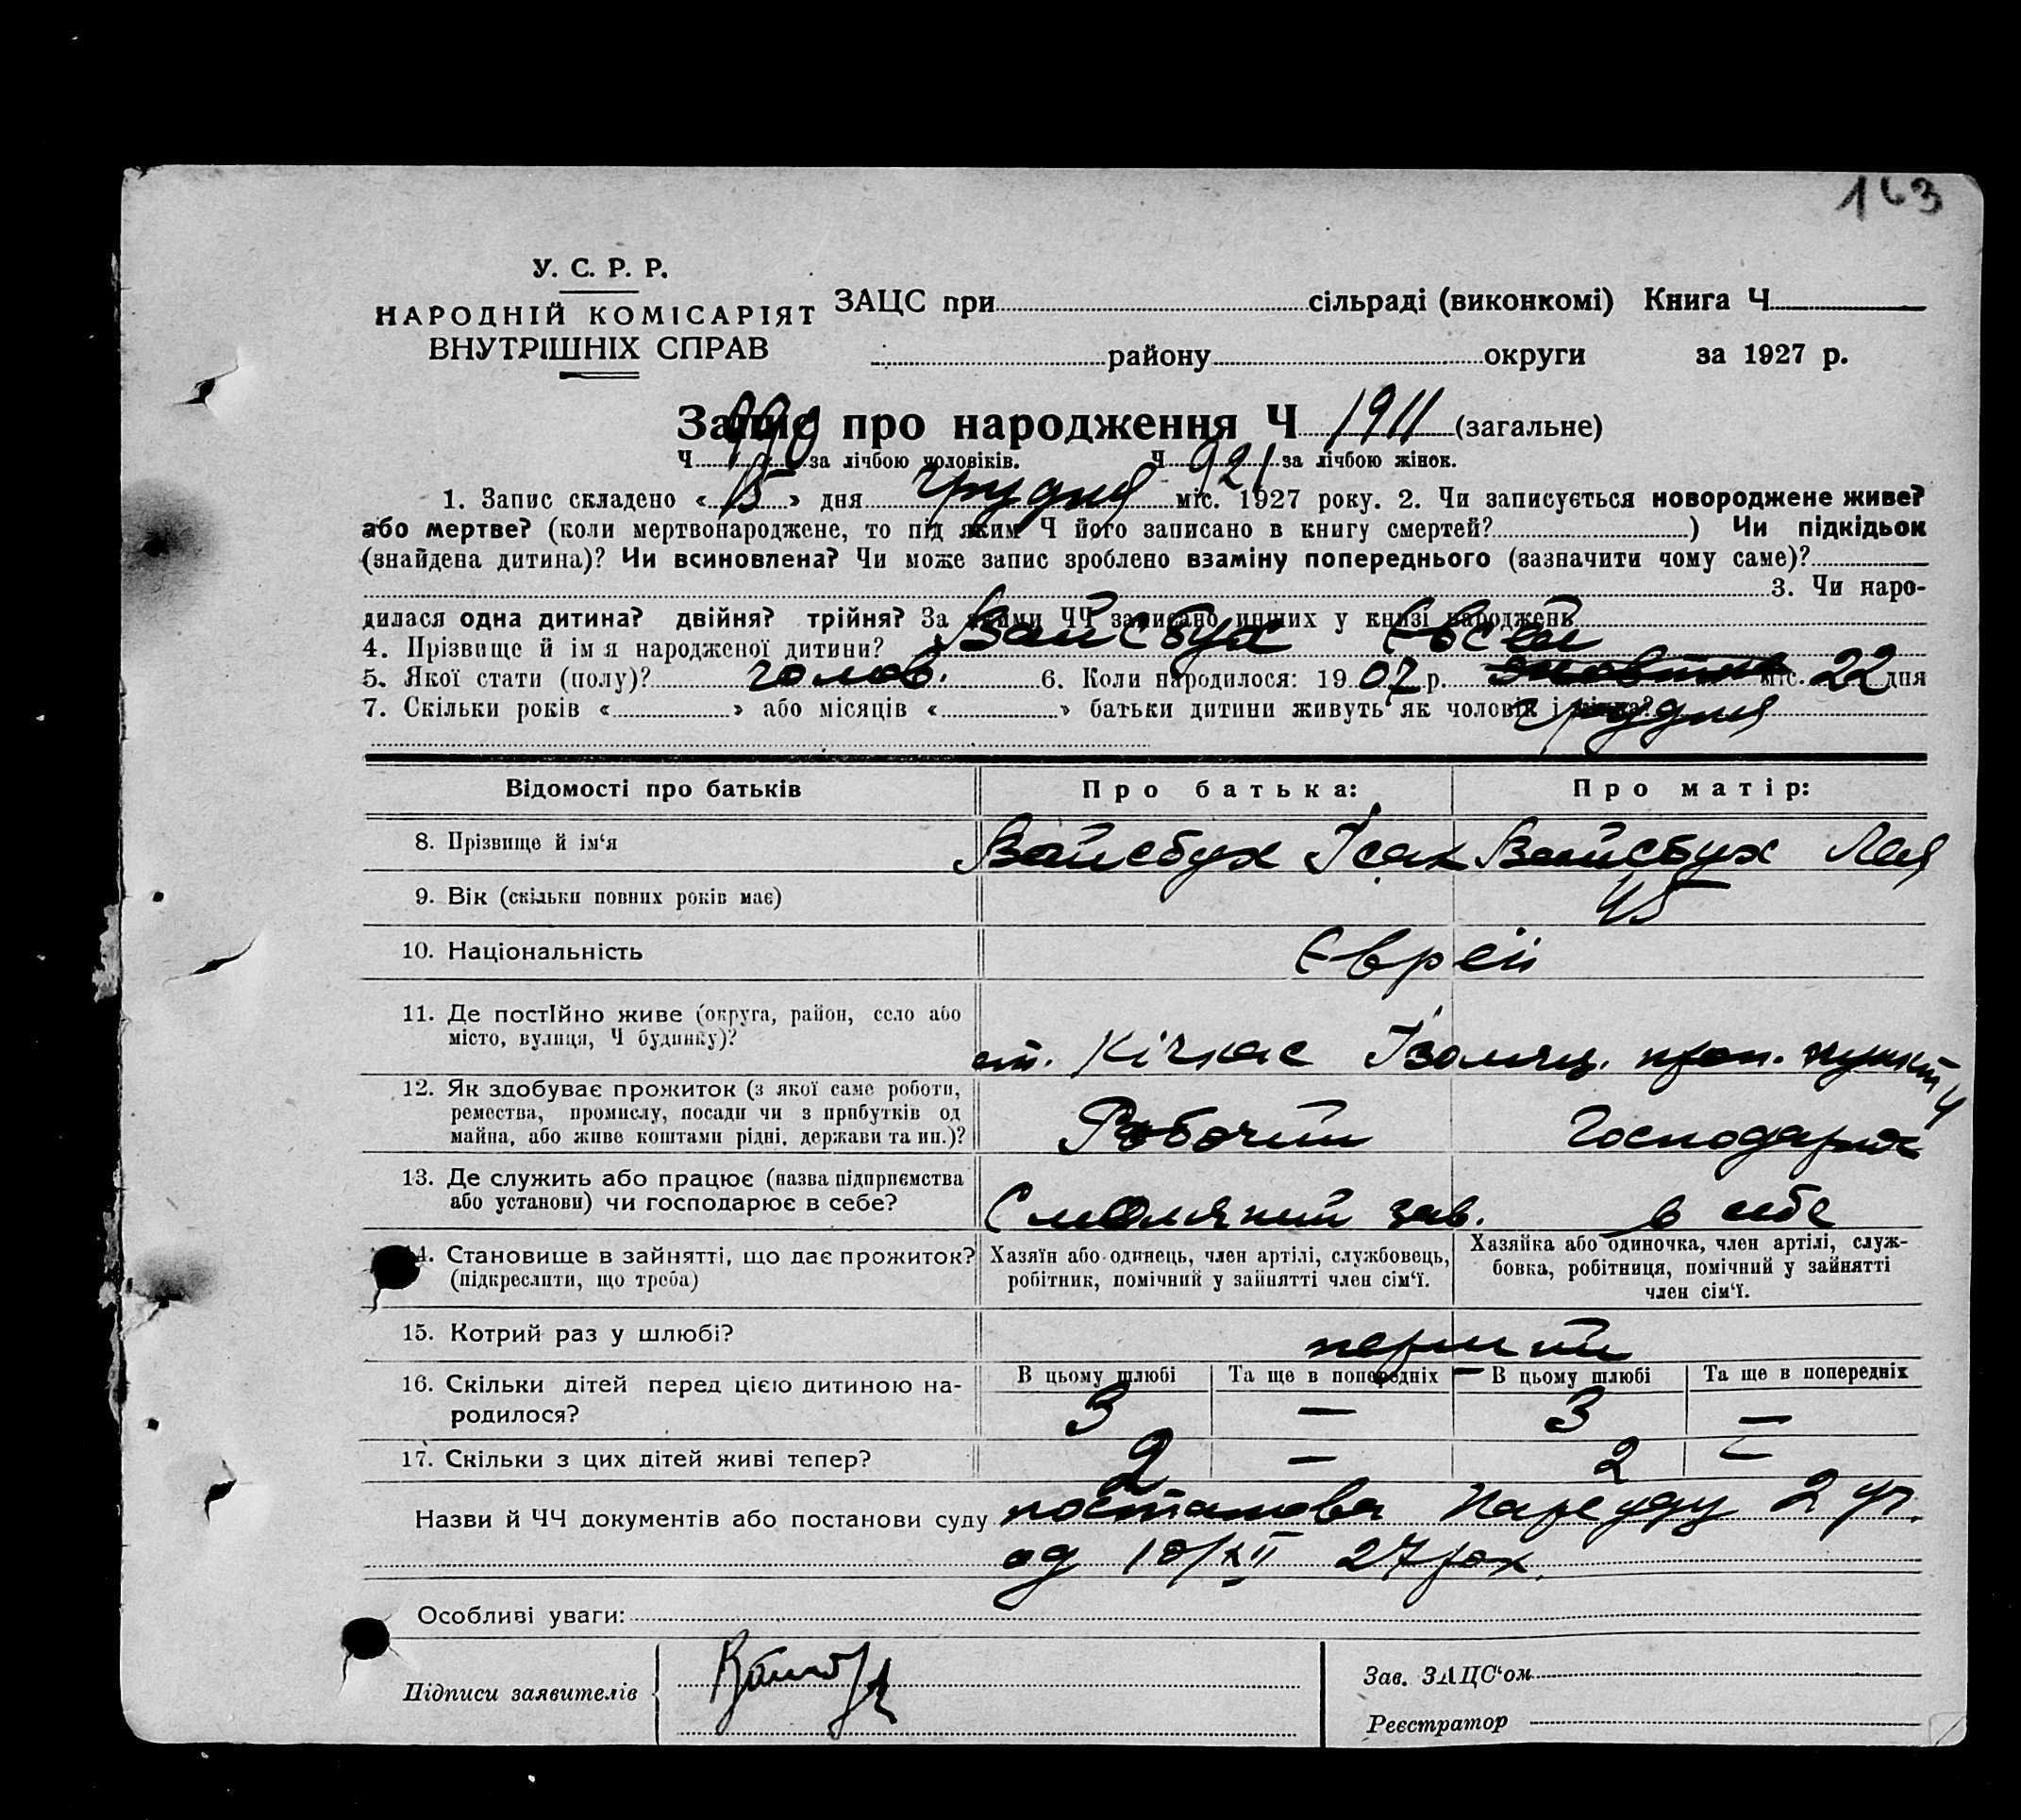 163
У. С. Р. Р.
НАРОДНІЙ КОМІСАРІЯТ
ВНУТРІШНІХ СПРАВ
ЗАЦС при сільраді (виконкомі) Книга Ч
району округи за 1927 р.
Запис про народження Ч 1911 (загальне)
Ч 990 за лічбою чоловіків. Ч 921 за лічбою жінок.
1. Запис складено « 15 » дня грудня міс. 1927 року. 2. Чи записується новороджене живе?
або мертве? (коли мертвонароджене, то під яким Ч його записано в книгу смертей? ) Чи підкідьок
(знайдена дитина)? Чи всиновлена? Чи може запис зроблено взаміну попереднього (зазначити чому саме)?
3. Чи наро-
дилася одна дитина? двійня? трійня? За якими ЧЧ записано инших у книзі народжень
4. Прізвище й ім'я народженої дитини? Вайсбух Євсей
5. Якої стати (полу)? чолов. 6. Коли народилося: 1907 р. жовтня міс. 22 дня
7. Скільки років « » або місяців « » батьки дитини живуть як чоловік і жінка? грудня
Відомості про батьків Про батька: Про матір:
8. Прізвище й ім'я Вайсбух Ісак Вайсбух Лея
9. Вік (скільки повних років має) 45
10. Національність Єврей
11. Де постійно живе (округа, район, село або
місто, вулиця, Ч будинку)? ст. Кічкас Ізоляц. проп. пункт
12. Як здобуває прожиток (з якої саме роботи,
ремества, промислу, посади чи з прибутків од
майна, або живе коштами рідні, держави та ин.)? Робочий Господарює
13. Де служить або працює (назва підприємства
або установи) чи господарює в себе? Смоляний зав. в себе
14. Становище в зайнятті, що дає прожиток?
(підкреслити, що треба)
Хазяїн або одинець, член артілі, службовець,
робітник, помічний у зайнятті член сім'ї.
Хазяйка або одиночка, член артілі, служ-
бовка, робітниця, помічний у зайнятті
член сім'ї.
15. Котрий раз у шлюбі? перший
16. Скільки дітей перед цією дитиною на-
родилося?
В цьому шлюбі Та ще в попередніх В цьому шлюбі Та ще в попередніх
3 — 3 —
17. Скільки з цих дітей живі тепер? 2 — 2 —
Назви й ЧЧ документів або постанови суду постанова Нарсуду 2 уч.
од 10/XII 27 рок.
Особливі уваги:
Підписи заявителів
Зав. ЗАЦС'ом
Реєстратор